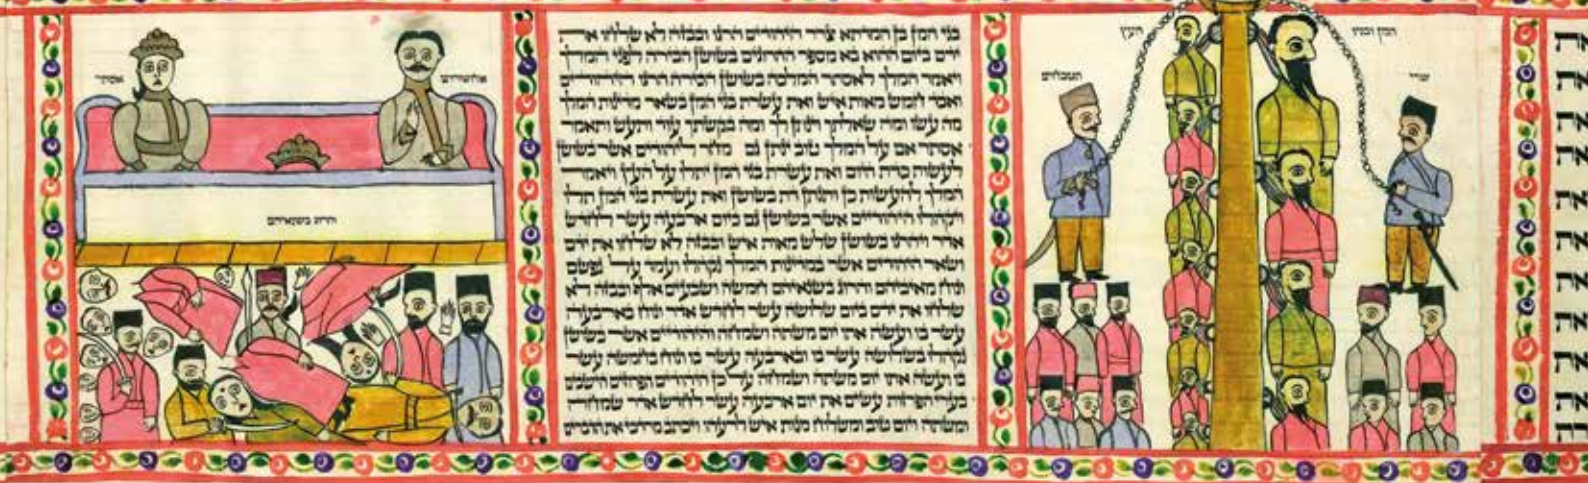 המן ובניו
העץ
בני המן בן המדתא צרר היהודים הרגו ובבזה לא שלחו את
ידם ביום ההוא בא מספר ההרוגים בשושן הבירה לפני המלך
ויאמר המלך לאסתר המלכה בשושן הבירה הרגו היהודים
ואבד חמש מאות איש ואת עשרת בני המן בשאר מדינות המלך
מה עשו ומה שאלתך וינתן לך ומה בקשתך עוד ותעש ותאמר
אסתר אם על המלך טוב ינתן גם מחר ליהודים אשר בשושן
לעשות כדת היום ואת עשרת בני המן יתלו על העץ ויאמר
המלך להעשות כן ותנתן דת בשושן ואת עשרת בני המן תלו
ויקהלו היהודיים אשר בשושן גם ביום ארבעה עשר לחדש
אדר ויהרגו בשושן שלש מאות איש ובבזה לא שלחו את ידם
ושאר היהודים אשר במדינות המלך נקהלו ועמד על נפשם
ונוח מאיביהם והרג בשנאיהם חמשה ושבעים אלף ובבזה לא
שלחו את ידם ביום שלושה עשר לחדש אדר ונוח בארבעה
עשר בו ועשה אתו יום משתה ושמחה והיהודיים אשר בשושן
נקהלו בשלושה עשר בו ובארבעה עשר בו ונוח בחמשה עשר
בו ועשה אתו יום משתה ושמחה על כן היהודים הפרזים הישבים
בערי הפרזות עשים את יום ארבעה עשר לחדש אדר שמחה
ומשתה ויום טוב ומשלוח מנות איש לרעהו ויכתב מרדכי את הדברים
אחשורוש
אסתר
והרוג בשנאיהם